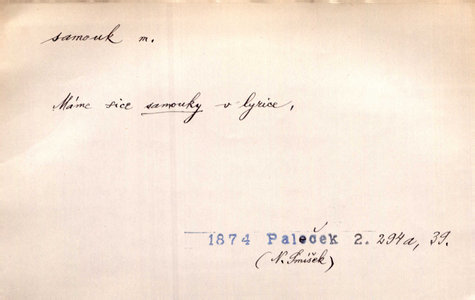 samouk m.
Máme sice samouky v lyrice,
1874 Paleček 2. 294a, 39.
(N. Smíšek)